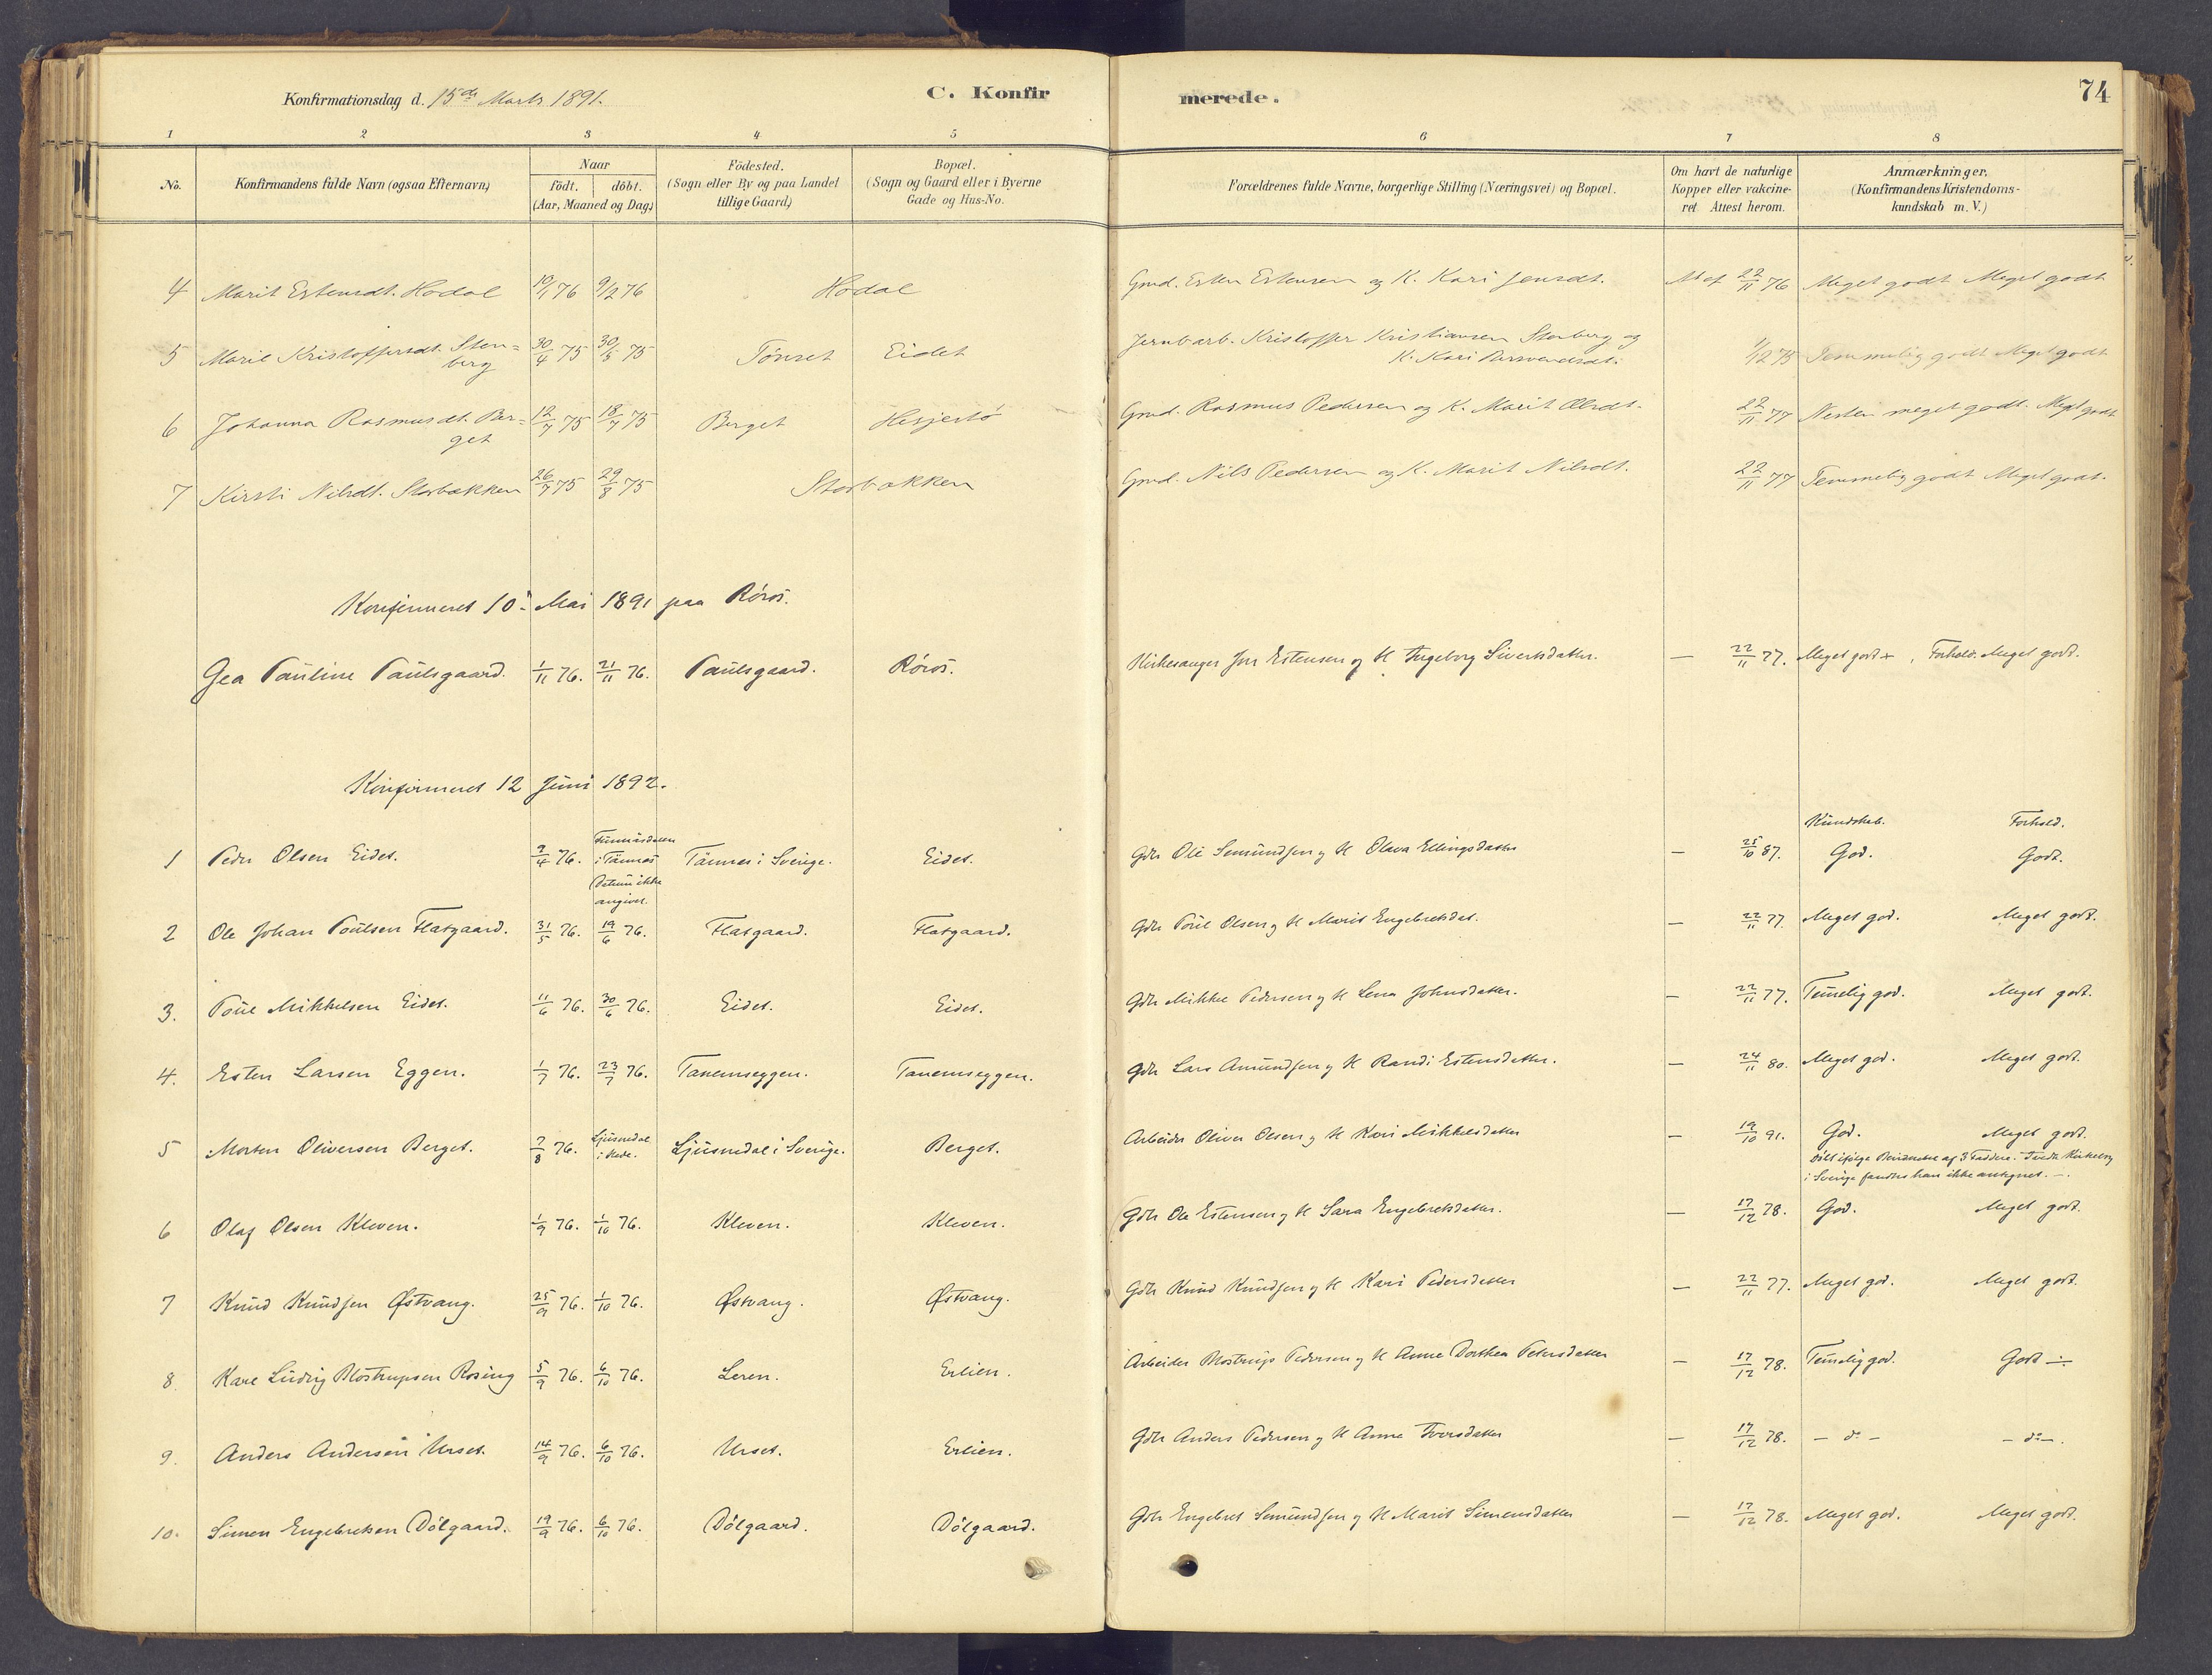 Konfirmationsdag d. 15de Marts 1891.
C. Konfirmerede.
74
1 2 3 4 5 6 7 8
No.
Konfirmandens fulde Navn (ogsaa Efternavn)
Naar
födt. döbt.
(Aar, Maaned og Dag)
Födested.
(Sogn eller By og paa Landet
tillige Gaard)
Bopæl.
(Sogn og Gaard eller i Byerne
Gade og Hus-No.
Forældrenes fulde Navne, borgerlige Stilling (Næringsvei) og Bopæl.
Om havt de naturlige
Kopper eller vakcine-
ret Attest herom.
Anmærkninger.
(Konfirmandens Kristendoms-
kundskab m. V.)
4 Marit Estensdt. Hodal 10/1 76 9/2 76 Hodal Gmd. Esten Estensen og K. Kari Jensdt. At af 22/11 76 Meget godt Meget godt
5 Marie Kristoffersdt. Sten= 30/4 75 30/5 75 Tönset Eidet Jernbarb. Kristoffer Kristiansen Stenberg og 1/12 75 Temmelig godt Meget godt
berg K. Kari
6 Johanna Rasmusdt. Ber= 12/7 75 18/7 75 Berget Hesjestö Gmd. Rasmus Pedersen og K. Marit Olsdt. 22/11 77 Nesten meget godt. Meget godt
get
7 Kirsti Nilsdt. Storbækken 26/7 75 29/8 75 Storbækken Gmd. Nils Pedersen og K. Marit Nilsdt. 22/11 77 Temmelig godt Meget godt.
Konfirmeret 10. Mai 1891 paa Röros.
Gea Pauline Paulsgaard. 1/11 76. 21/11 76. Paulsgaard. Röros. Kirkesanger Jon Estensen og H Ingeborg Sivertsdatter. — 22/11 77. Meget godt +, Forhold: Meget godt.
Konfirmeret 12 Juni 1892.
Kundskab. Forhold.
1 Peder Olsen Eidet. 9/4 76. i Tännes Tännes i Sverige. Eidet. Gdr Ole Semundsen og H Olava Ellingsdatter — 25/10 87. God. Godt.
Datum ikke
angivet.
2 Ole Johan Poulsen Flatgaard. 31/5 76. 19/6 76. Flatgaard. Flatgaard. Gdr Poul Olsen og H Marit Engebretsdat. — 22/11 77. Meget god. Meget godt.
3. Poul Mikkelsen Eidet. 11/6 76. 30/6 76. Eidet. Eidet. Gdr Mikkel Pedersen og H Lena Johnsdatter. — 22/11 77. Temelig god. Meget godt.
4. Esten Larsen Eggen. 1/7 76. 23/7 76. Tanemseggen. Tanemseggen. Gdr Lars Amundsen og H Randi Estensdatter. — 24/11 80. Meget god. Meget godt.
5 Morten Oliversen Berget. 7/8 76. Ljusnedal Ljusnedal i Sverige. Berget. Arbeider Oliver Olsen og H Kari Mikkelsdatter — 19/10 91. God. Meget godt.
Döbt ifölge af 3 Faddere.
i Sverige fandtes han ikke antegnet. —
6 Olaf Olsen Kleven. 1/9 76. 1/10 76. Kleven. Kleven. Gdr Ole Estensen og H Sara Engebretsdatter. — 17/12 78. God. Meget godt.
7 Knud Knudsen Østvang. 25/9 76. 1/10 76. Østvang. Østvang. Gdr Knud Knudsen og H Kari Pedersdatter — 22/11 77. Meget god. Meget godt.
8. Karl Ludvig Mostrupsen Rosing 5/9 76. 6/10 76. Leren. Erlien. Arbeider Mostrup Pedersen og H Anne Dorthea Petersdatter — 17/12 78. Temelig god. Godt ÷
9. Anders Andersen Urset. 14/9 76. 6/10 76. Urset. Erlien. Gdr Anders Pedersen og H Anne Iversdatter — 17/12 78. — do — — do —.
10. Simen Engebretsen Dölgaard. 19/9 76. 6/10 76. Dölgaard. Dölgaard. Gdr Engebret Semundsen og H Marit Simensdatter — 17/12 78. Meget god. Meget godt.